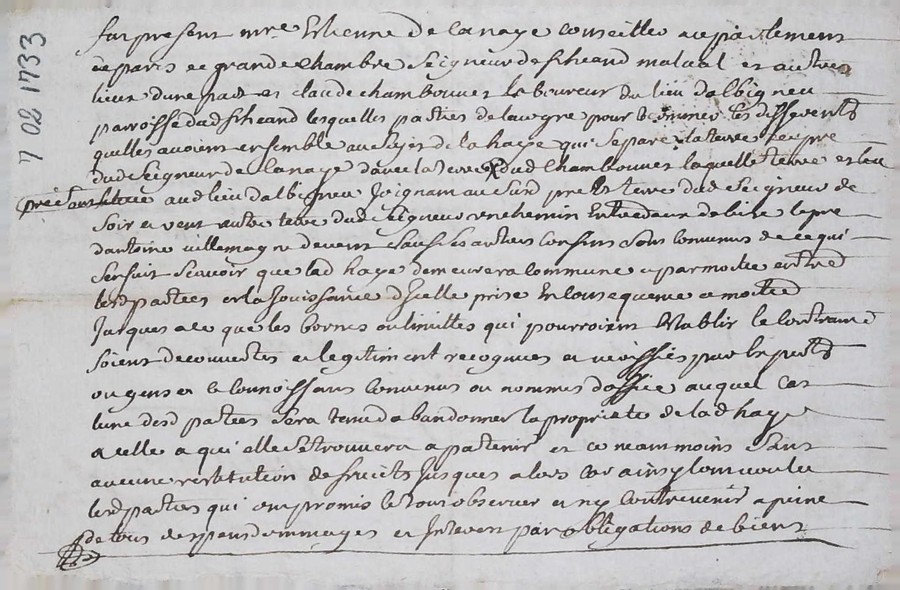 7 02 1733
fut present mre Estienne de lanaye conseiller au parlement
de paris et grande chambre Seigneur de fiheand malval et autres
lieux dune part et claude chambouvet laboureur du lieu dalbigneu
parroisse dud fiheand lesquelles parties de leur gre pour terminer les differents
quelles avoient ensemble au sujet de la haye qui separe la terre et pre
dud Seigneur de Lanaye davec la terre dud Chambouvet laquelle terre et led
pre sont situes aud lieu dalbigneu Joignant au Sud pre et terre dud Seigneur de
Soir et vent autre terre dud Seigneur un chemin entredeux de bize le pre
dantoine villemagne devent Sauf ses autres confins Sont convenus de ce qui
Sensuit Scavoir que lad haye demeurera commune et par moitie entre
lesd parties et la Jouissance dicelle prise En consequence et moitie
Jusques a ce que les bornes ou limittes qui pourroient Establir le contraire
Soient decouvertes et legitiment recognues et veriffiés par Experts
ou gens a ce connoissans convenus ou nommes doffice auquel cas
lune desd parties Sera tenue dabandonner la propriete de lad haye
a celle a qui elle Se trouvera apartenir et ce neanmoins Sans
aucune restitution de fruits Jusques alors car ainsy lont voulu
lesd parties qui ont promis le tout observer et ny contrevenir a peine
de tous despens dommages et Interets par obligations de biens